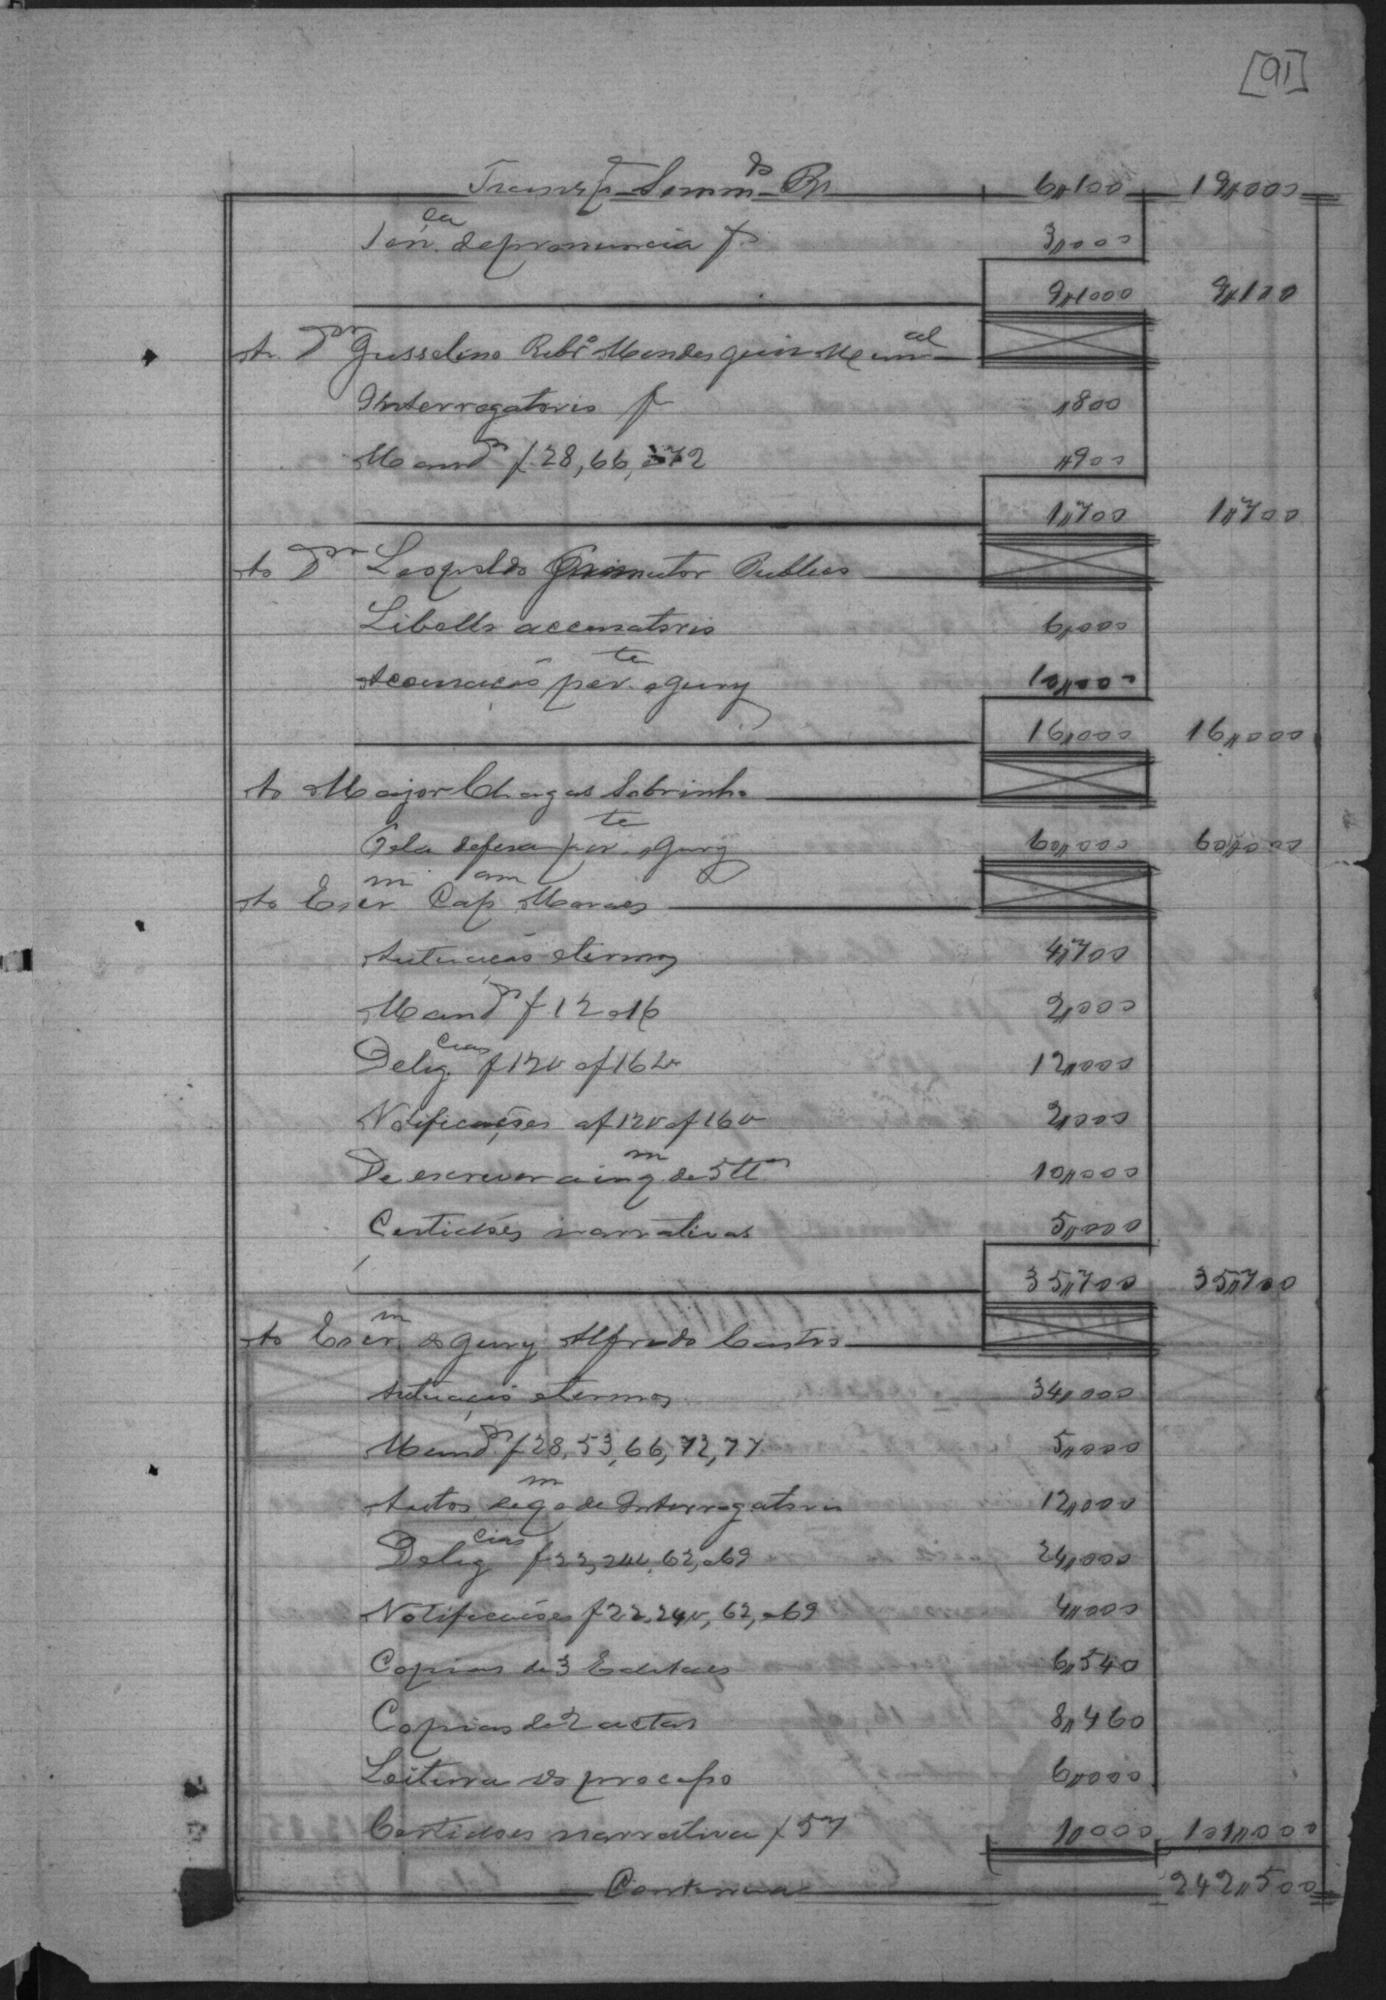 [91]
Transp. Somm.do Rs 6,,100 19,,000
Sen.ça de pronuncia f. 3,,000
9,,1000 9,,100
Ao Dr Rib.o Mendes Juiz Mun.al
Interrogatorio f ,,800
Mand.os f. 28, 66, 72 ,,900
1,,700 1,,700
Ao Dr Leopoldo Publico
Libello accusatorio 6,,000
Accusação per.te o Jury 10,,000
16,,000 16,,000
Ao Major Chagas Sobrinho
Pela defesa per.te o Jury 60,,000 60,,000
Ao Escr.m Cap.am Moraes
Autuação e termos 4,,700
Mand.os f. 12 e 16 2,,000
Delig.cias f 12v e f 16v 12,,000
Notificações a f 12v e f 16v 2,,000
De escrever a inq.m de 5 tt.as 10,,000
Certidões narrativas 5,,000
35,,700 35,,700
Ao Escr.m do Jury Alfredo Castro
Autuação e termos 34,,000
Mand.os f 28, 53, 66, 72, 77 5,,000
Autos de q.m e de Interrogatorio 12,,000
Delig.cias f 22, 24v, 62, e 69 24,,000
Notificações f 22, 24v, 62, e 69 4,,000
Copias de 3 Editaes 6,,540
Copias de 2 actas 8,,460
Leitura do processo 6,,000
Certidões narrativa f 57 1,,0000 101,,000
Continua 242,,500